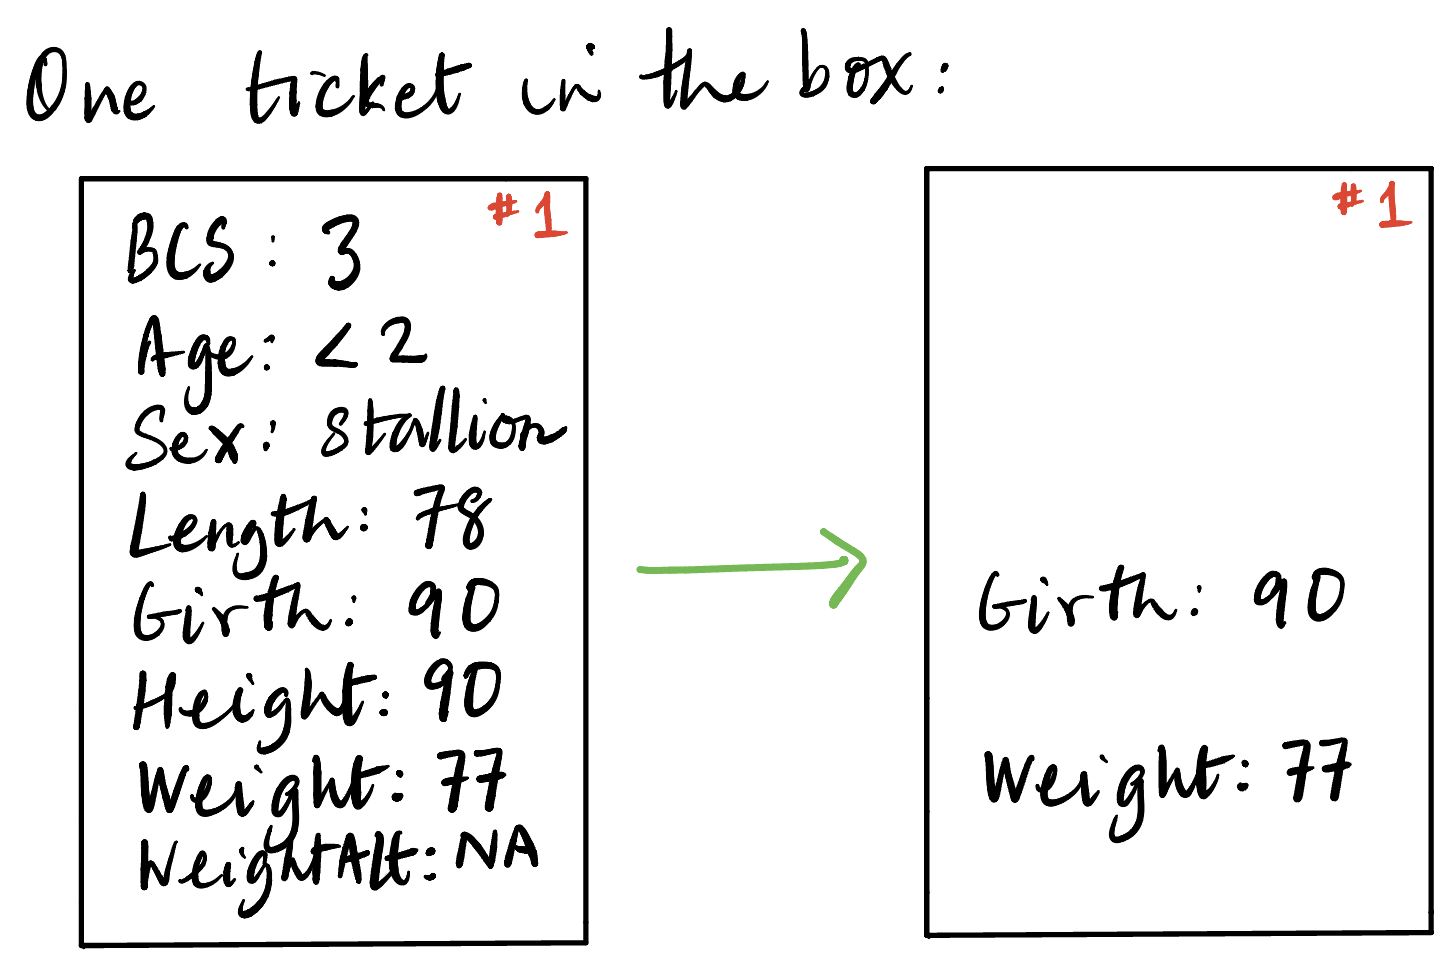 One ticket in the box:
#1
BCS: 3
Age: <2
Sex: stallion
Length: 78
Girth: 90
Height: 90
Weight: 77
WeightAlt: NA
#1
Girth: 90
Weight: 77